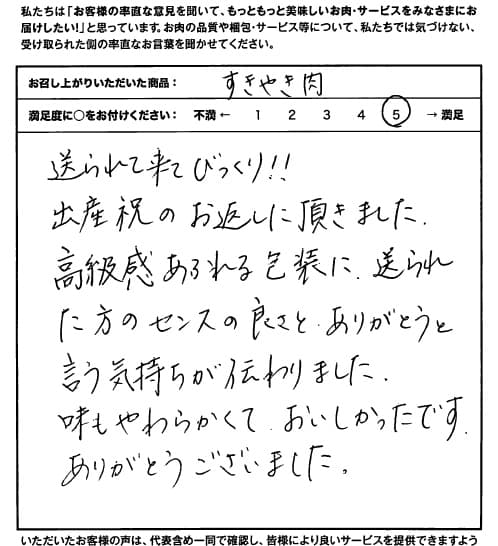 私たちは「お客様の率直な意見を聞いて、もっともっと美味しいお肉・サービスをみなさまにお
届けしたい!」と思っています。お肉の品質や梱包・サービス等について、私たちでは気づけない、
受け取られた側の率直なお言葉を聞かせてください。
お召し上がりいただいた商品： すきやき肉
満足度に○をお付けください： 不満 ← 1 2 3 4 5 → 満足
送られて来てびっくり!!
出産祝のお返しに頂きました.
高級感あふれる包装に、送られ
た方のセンスの良さと、ありがとうと
言う気持ちが伝わりました.
味もやわらかくて、おいしかったです.
ありがとうございました。
いただいたお客様の声は、代表含め一同で確認し、皆様により良いサービスを提供できますよう